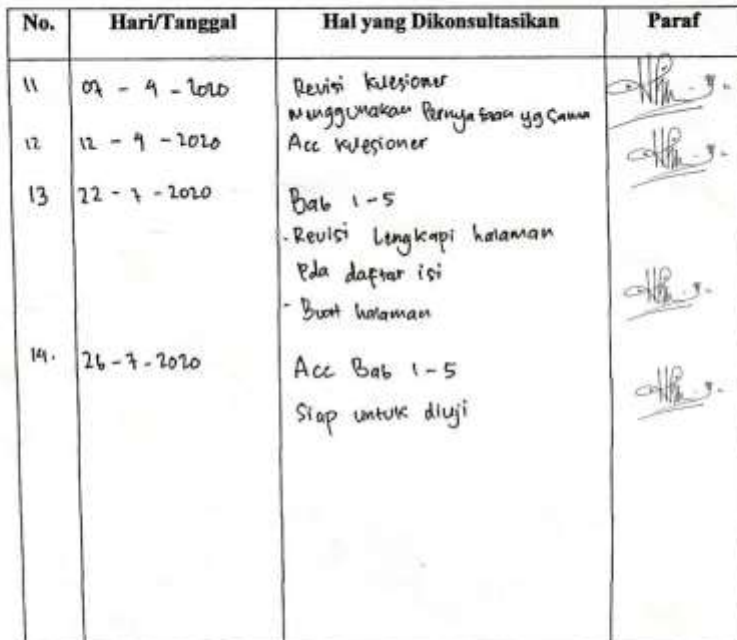 No. Hari/Tanggal Hal yang Dikonsultasikan Paraf
11 07 - 4 - 2020 Revisi kuesioner
Menggunakan Pernyataan yg sama
12 12 - 4 - 2020 Acc kuesioner
13 22 - 7 - 2020 Bab 1 - 5
- Revisi Lengkapi halaman
Pda daftar isi
- Buat halaman
14. 26 - 7 - 2020 Acc Bab 1 - 5
Siap untuk diuji